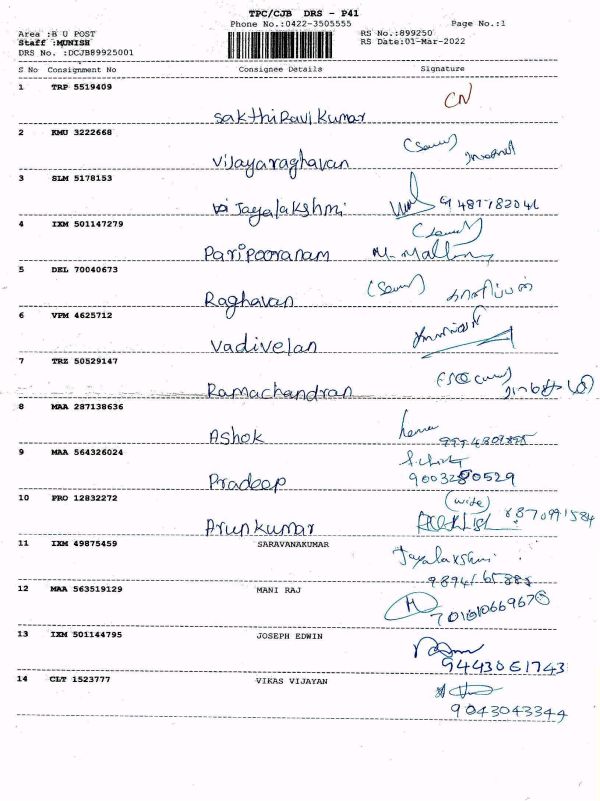 TPC/CJB DRS - P41
Phone No.:0422-3505555
Page No.:1
Area :B U POST
RS No.:899250
Staff :MUNISH
RS Date:01-Mar-2022
DRS No. :DCJB89925001
S No Consignment No Consignee Details Signature
1 TRP 5519409
CN
Sakthi Ravi Kumar
2 KMU 3222668
Vijayaraghavan
3 SLM 5178153
Vijayalakshmi
4 IXM 501147279
Paripooranam M. Mallim
5 DEL 70040673
Raghavan
6 VPM 4625712
Vadivelan
7 TRZ 50529147
Ramachandran
8 MAA 287138636
Ashok
9 MAA 564326024
Pradeep 9003280529
10 PRO 12832272
(wife)
Arun kumar 8870991584
11 IXM 49875459 SARAVANAKUMAR
Jayalakshmi
9894165885
12 MAA 563519129 MANI RAJ
13 IXM 501144795 JOSEPH EDWIN
9443061743
14 CLT 1523777 VIKAS VIJAYAN
9043043344